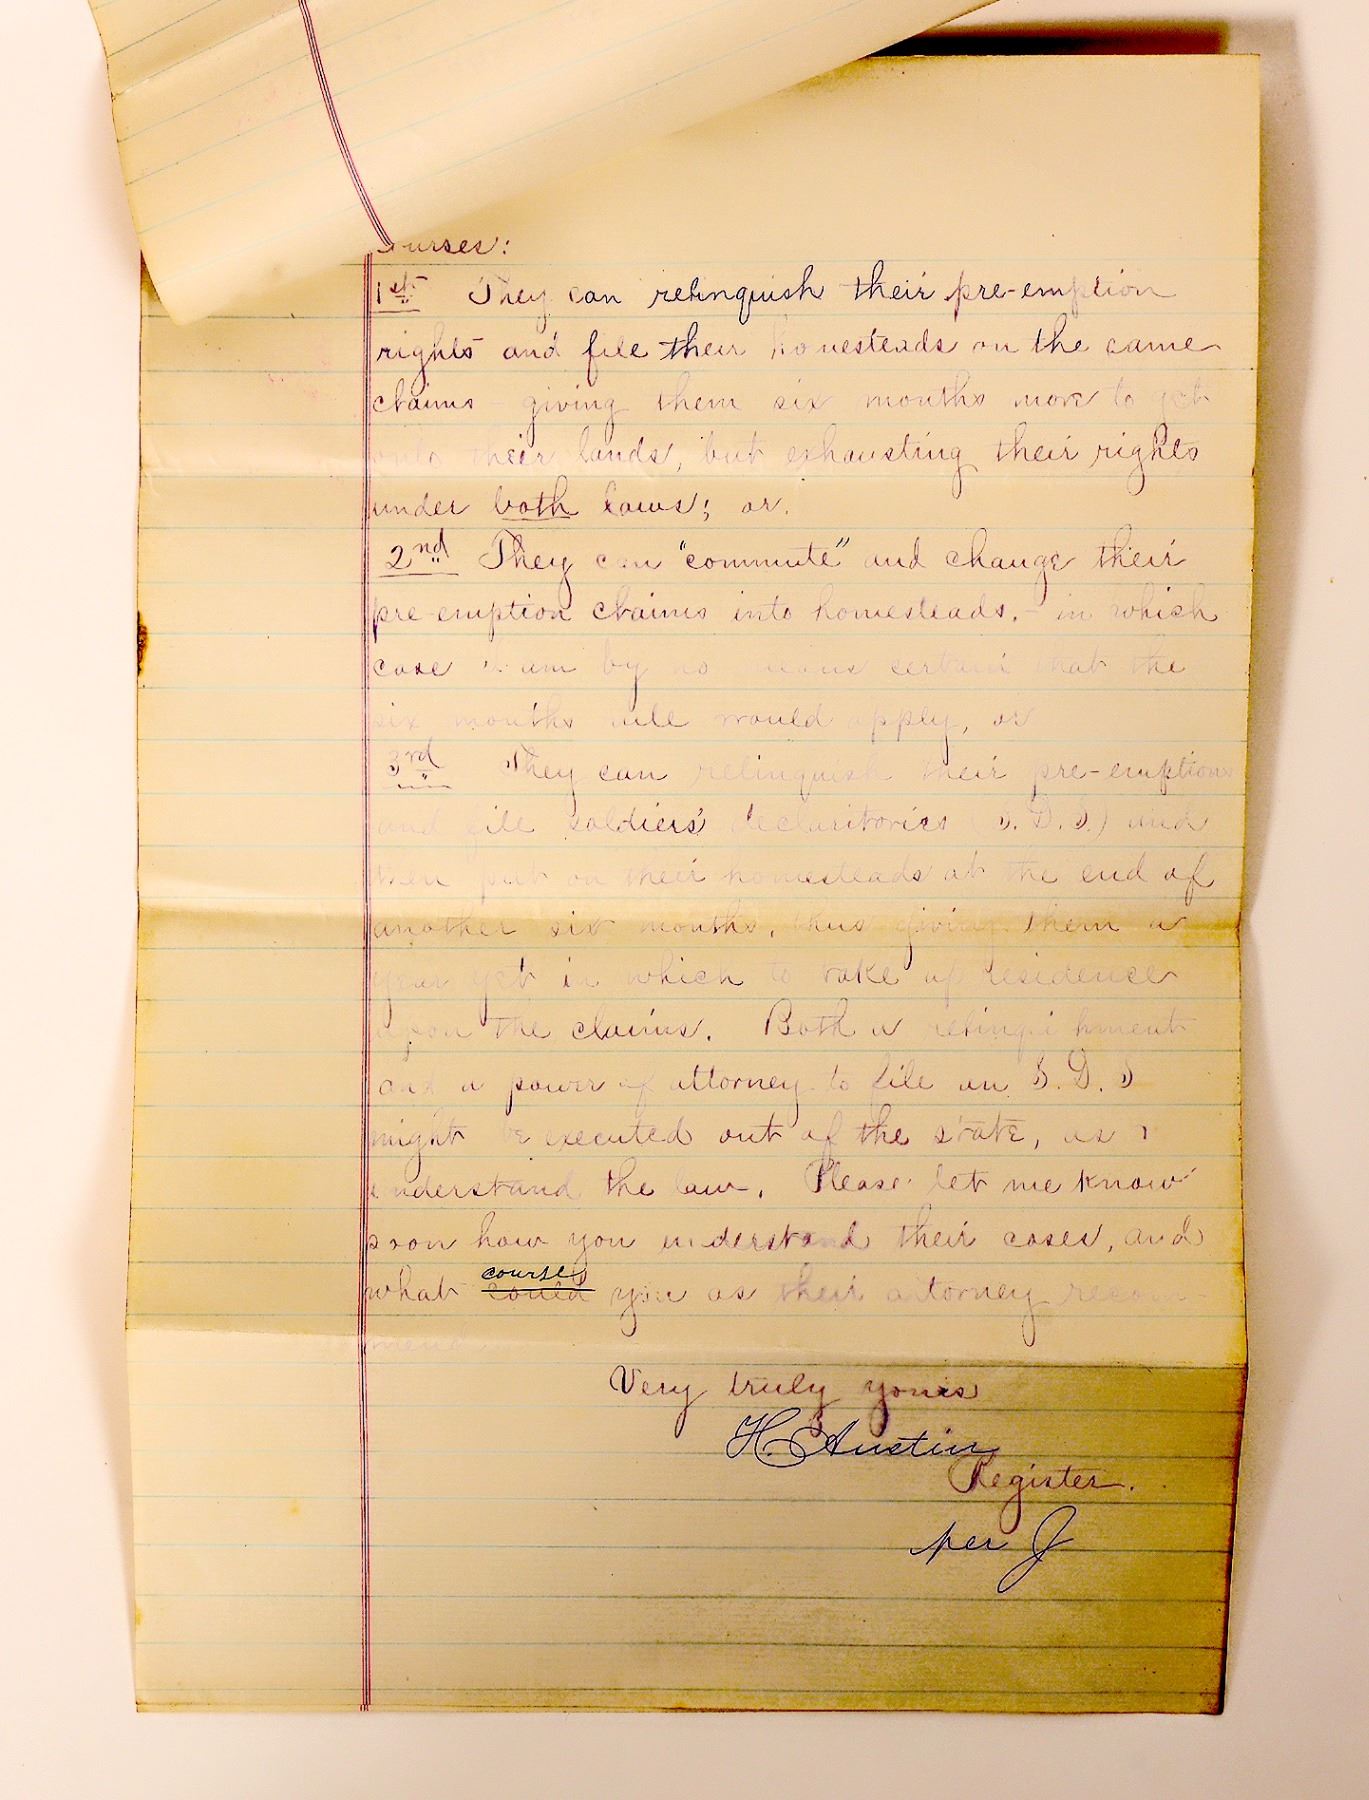 ourses:
1st They can relinquish their pre-emption
rights and file their homesteads on the same
claims - giving them six months more to get
onto their lands, but exhausting their rights
under both laws; or.
2nd They can "commute" and change their
pre-emption claims into homesteads, - in which
case I am by no means certain that the
six months rule would apply, or
3rd They can relinquish their pre-emptions
and file soldiers' declaritories (S. D. S.) and
then put on their homesteads at the end of
another six months, thus giving them a
year yet in which to take up residence
upon the claims. Both a relinquishment
and a power of attorney to file an S. D. S
might be executed out of the state, as I
understand the law. Please let me know
soon how you understand their cases, and
what could course you as their attorney recom
mend.
Very truly yours
H. Austin
Register.
per J